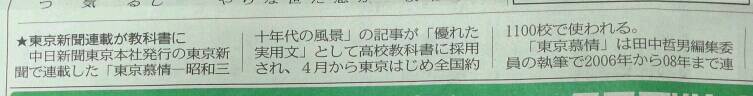 ★東京新聞連載が教科書に
中日新聞東京本社発行の東京新
聞で連載した「東京慕情―昭和三
十年代の風景」の記事が「優れた
実用文」として高校教科書に採用
され、４月から東京はじめ全国約
1100校で使われる。
「東京慕情」は田中哲男編集委
員の執筆で2006年から08年まで連